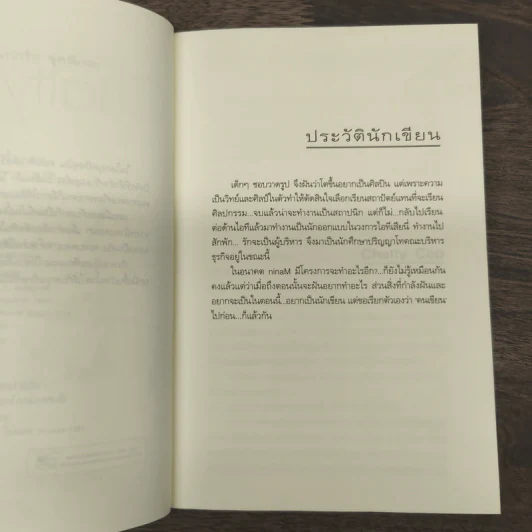 ประวัตินักเขียน
เด็กๆ ชอบวาดรูป จึงฝันว่าโตขึ้นอยากเป็นศิลปิน แต่เพราะความ
เป็นวิทย์และศิลป์ในตัวทำให้ตัดสินใจเลือกเรียนสถาปัตย์แทนที่จะเรียน
ศิลปกรรม...จบแล้วน่าจะทำงานเป็นสถาปนิก แต่ก็ไม่...กลับไปเรียน
ต่อด้านไอทีแล้วมาทำงานเป็นนักออกแบบในวงการไอทีเสียนี่ ทำงานไป
สักพัก... รักจะเป็นผู้บริหาร จึงมาเป็นนักศึกษาปริญญาโทคณะบริหาร
ธุรกิจอยู่ในขณะนี้
ในอนาคต ninaM มีโครงการจะทำอะไรอีก?...ก็ยังไม่รู้เหมือนกัน
คงแล้วแต่ว่าเมื่อถึงตอนนั้นจะฝันอยากทำอะไร ส่วนสิ่งที่กำลังฝันและ
อยากจะเป็นในตอนนี้...อยากเป็นนักเขียน แต่ขอเรียกตัวเองว่า 'คนเขียน'
ไปก่อน...ก็แล้วกัน